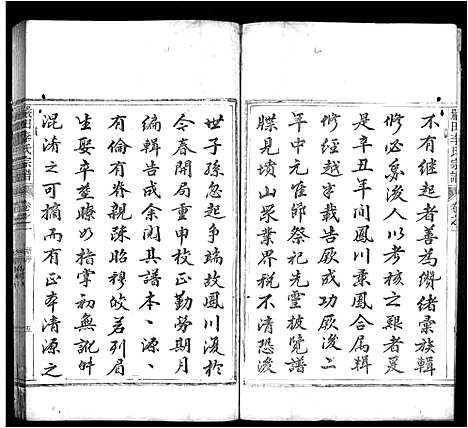 嚴田李氏宗譜
不有継起者善為纘緒彙族輯
修必象後人以考核之艱者爰
是辛丑年間鳳川秉鳳合局輯
修経越半載告厥成功厥後二
年中元雅師祭祀先霊披覽譜
牒見墳山眾業界税不清恐後
世子孫忽起争端故鳳川復於
令春開局重申校正勤勞期月
編輯告成余閱其譜本本源源
有倫有脊親疎昭穆皎若列眉
生娶卒塟瞭如指掌初無訛舛
混淆之可摘而有正本清源之
嚴田李氏宗譜
五